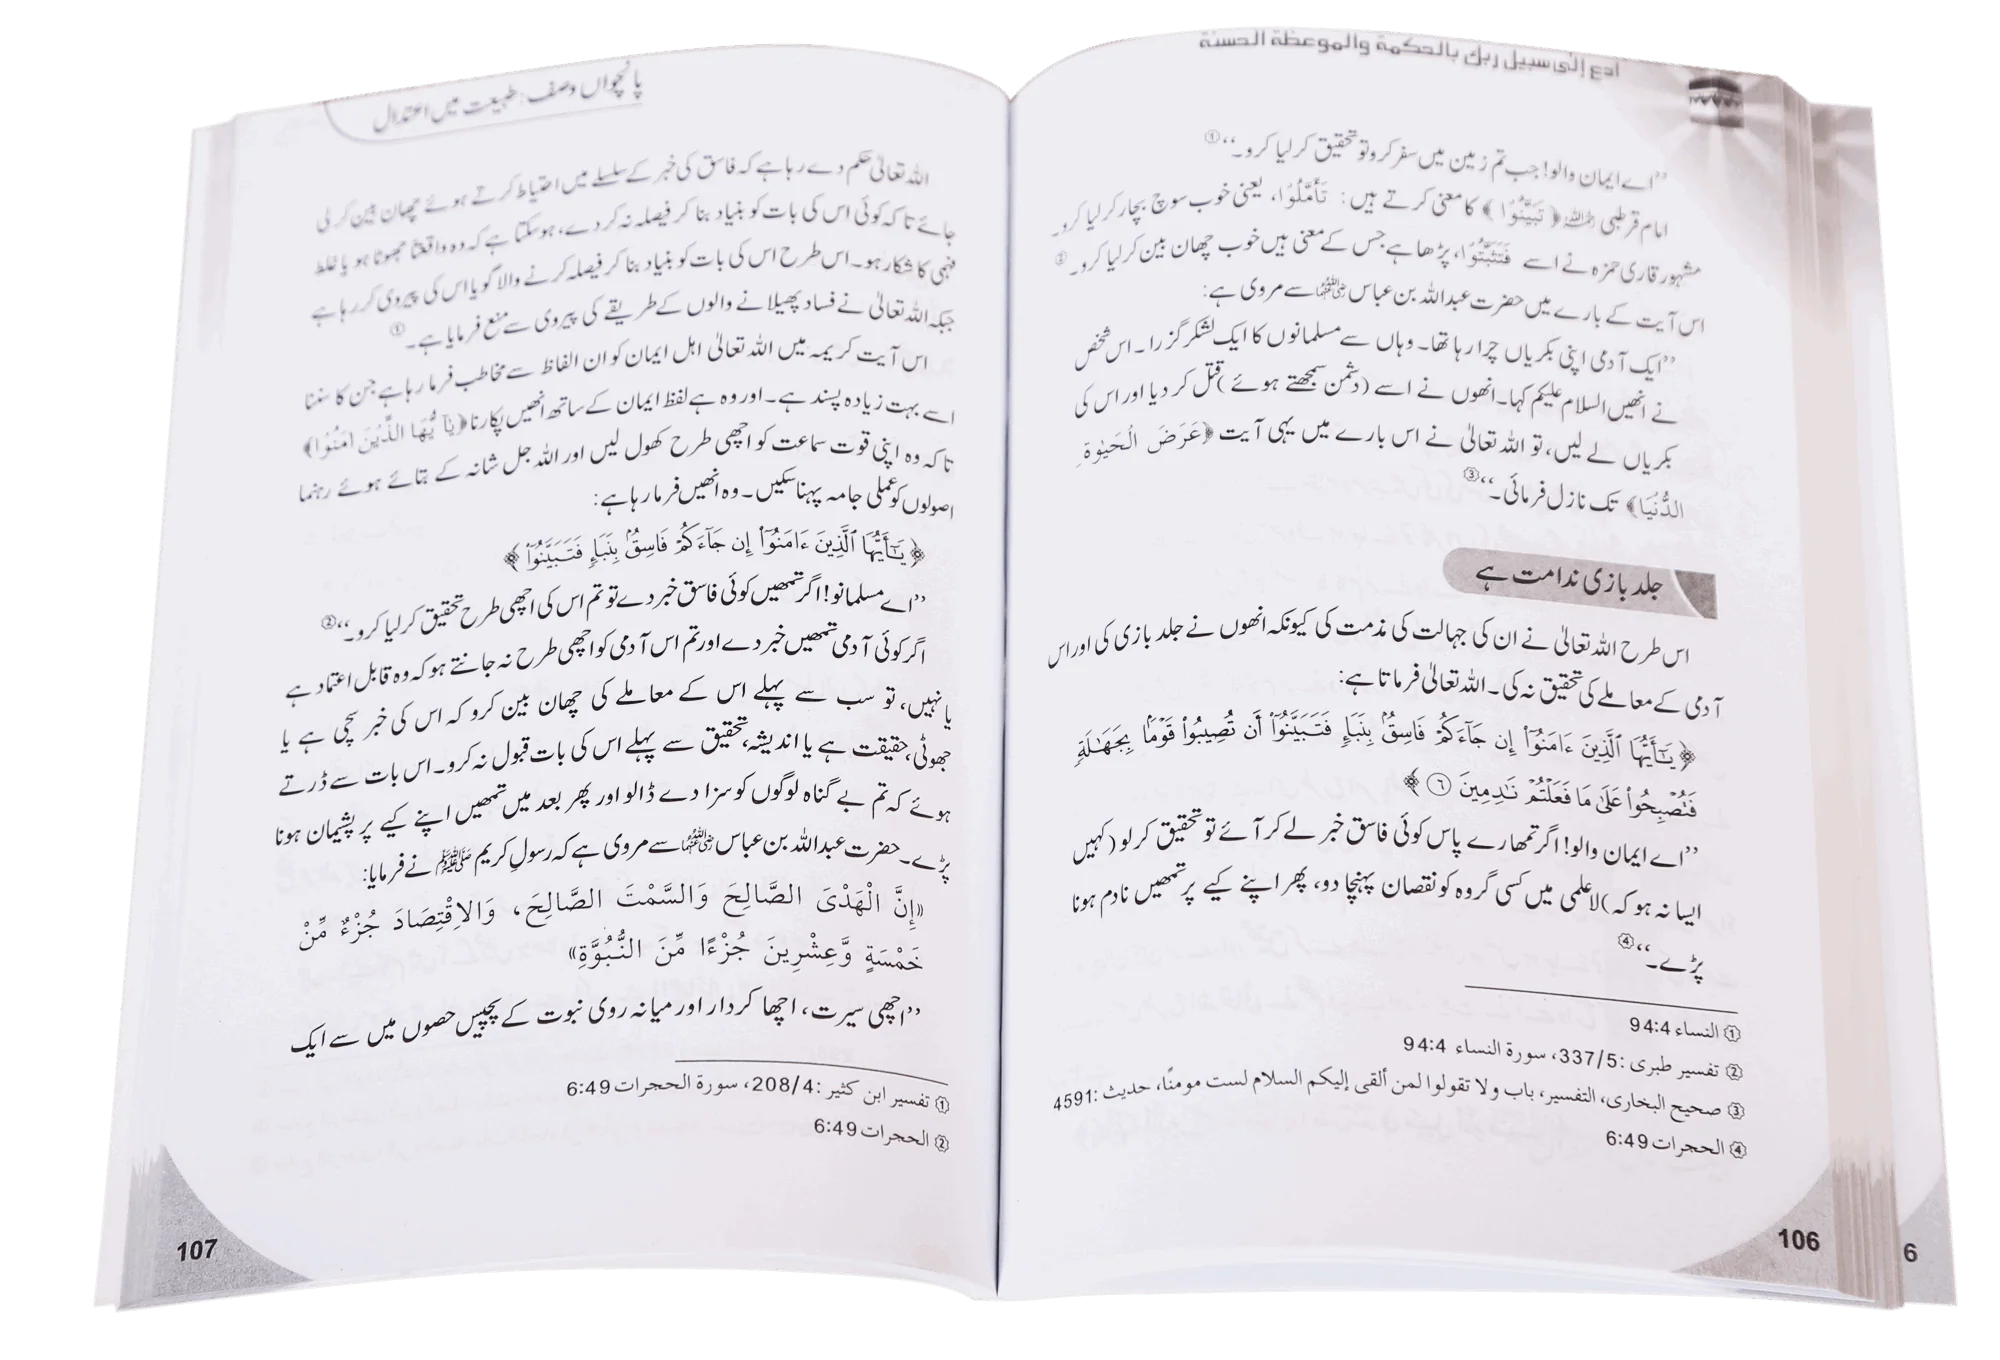 ادع إلى سبيل ربك بالحكمة والموعظة الحسنة
’’اے ایمان والو! جب تم زمین میں سفر کرو تو تحقیق کر لیا کرو۔‘‘①
امام قرطبی رحمہ اللہ ﴿تَبَيَّنُوْا﴾ کا معنی کرتے ہیں: تَأَمَّلُوْا، یعنی خوب سوچ بچار کر لیا کرو۔
مشہور قاری حمزہ نے اسے فَتَثَبَّتُوْا، پڑھا ہے جس کے معنی ہیں خوب چھان بین کر لیا کرو۔②
اس آیت کے بارے میں حضرت عبداللہ بن عباس رضی اللہ عنہما سے مروی ہے:
’’ایک آدمی اپنی بکریاں چرا رہا تھا۔ وہاں سے مسلمانوں کا ایک لشکر گزرا۔ اس شخص
نے انھیں السلام علیکم کہا۔ انھوں نے اسے (دشمن سمجھتے ہوئے) قتل کر دیا اور اس کی
بکریاں لے لیں، تو اللہ تعالیٰ نے اس بارے میں یہی آیت ﴿عَرَضَ الْحَيٰوةِ
الدُّنْيَا﴾ تک نازل فرمائی۔‘‘③
جلد بازی ندامت ہے
اس طرح اللہ تعالیٰ نے ان کی جہالت کی مذمت کی کیونکہ انھوں نے جلد بازی کی اور اس
آدمی کے معاملے کی تحقیق نہ کی۔ اللہ تعالیٰ فرماتا ہے:
﴿يَـٰٓأَيُّهَا ٱلَّذِينَ ءَامَنُوٓا۟ إِن جَآءَكُمْ فَاسِقٌۢ بِنَبَإٍ فَتَبَيَّنُوٓا۟ أَن تُصِيبُوا۟ قَوْمًۢا بِجَهَـٰلَةٍ
فَتُصْبِحُوا۟ عَلَىٰ مَا فَعَلْتُمْ نَـٰدِمِينَ ٦﴾
’’اے ایمان والو! اگر تمھارے پاس کوئی فاسق خبر لے کر آئے تو تحقیق کر لو (کہیں
ایسا نہ ہو کہ) لاعلمی میں کسی گروہ کو نقصان پہنچا دو، پھر اپنے کیے پر تمھیں نادم ہونا
پڑے۔‘‘④
① النساء 94:4
② تفسیر طبری: 337/5، سورة النساء 94:4
③ صحیح البخاری، التفسیر، باب ولا تقولوا لمن ألقى إليكم السلام لست مومنًا، حدیث: 4591
④ الحجرات 6:49
106
6
پانچواں وصف: طبیعت میں اعتدال
اللہ تعالیٰ حکم دے رہا ہے کہ فاسق کی خبر کے سلسلے میں احتیاط کرتے ہوئے چھان بین کر لی
جائے تا کہ کوئی اس کی بات کو بنیاد بنا کر فیصلہ نہ کر دے، ہو سکتا ہے کہ وہ واقعتًا جھوٹا ہو یا غلط
فہمی کا شکار ہو۔ اس طرح اس کی بات کو بنیاد بنا کر فیصلہ کرنے والا گویا اس کی پیروی کر رہا ہے
جبکہ اللہ تعالیٰ نے فساد پھیلانے والوں کے طریقے کی پیروی سے منع فرمایا ہے۔①
اس آیت کریمہ میں اللہ تعالیٰ اہل ایمان کو ان الفاظ سے مخاطب فرما رہا ہے جن کا سننا
اسے بہت زیادہ پسند ہے۔ اور وہ ہے لفظ ایمان کے ساتھ انھیں پکارنا ﴿يٰٓاَيُّهَا الَّذِيْنَ اٰمَنُوْا﴾
تا کہ وہ اپنی قوت سماعت کو اچھی طرح کھول لیں اور اللہ جل شانہ کے بتائے ہوئے رہنما
اصولوں کو عملی جامہ پہنا سکیں۔ وہ انھیں فرما رہا ہے:
﴿يَـٰٓأَيُّهَا ٱلَّذِينَ ءَامَنُوٓا۟ إِن جَآءَكُمْ فَاسِقٌۢ بِنَبَإٍ فَتَبَيَّنُوٓا۟﴾
’’اے مسلمانو! اگر تمھیں کوئی فاسق خبر دے تو تم اس کی اچھی طرح تحقیق کر لیا کرو۔‘‘②
اگر کوئی آدمی تمھیں خبر دے اور تم اس آدمی کو اچھی طرح نہ جانتے ہو کہ وہ قابل اعتماد ہے
یا نہیں، تو سب سے پہلے اس کے معاملے کی چھان بین کرو کہ اس کی خبر سچی ہے یا
جھوٹی، حقیقت ہے یا اندیشہ، تحقیق سے پہلے اس کی بات قبول نہ کرو۔ اس بات سے ڈرتے
ہوئے کہ تم بے گناہ لوگوں کو سزا دے ڈالو اور پھر بعد میں تمھیں اپنے کیے پر پشیمان ہونا
پڑے۔ حضرت عبداللہ بن عباس رضی اللہ عنہما سے مروی ہے کہ رسول کریم ﷺ نے فرمایا:
«إِنَّ الْهَدْىَ الصَّالِحَ وَالسَّمْتَ الصَّالِحَ، وَالاِقْتِصَادَ جُزْءٌ مِّنْ
خَمْسَةٍ وَّعِشْرِينَ جُزْءًا مِّنَ النُّبُوَّةِ»
’’اچھی سیرت، اچھا کردار اور میانہ روی نبوت کے پچیس حصوں میں سے ایک
① تفسیر ابن کثیر: 208/4، سورة الحجرات 6:49
② الحجرات 6:49
107